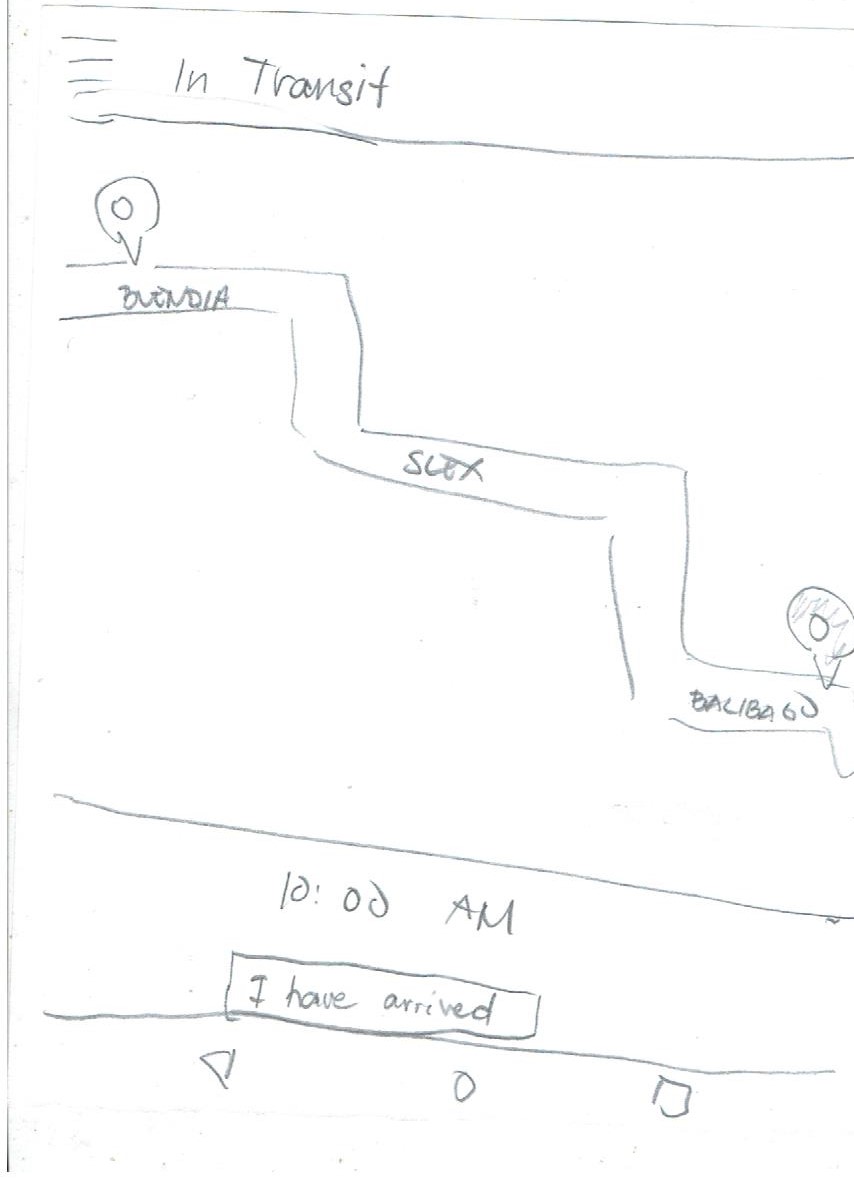 In Transit
BUENDIA
SLEX
BALIBAGO
10:00 AM
I have arrived